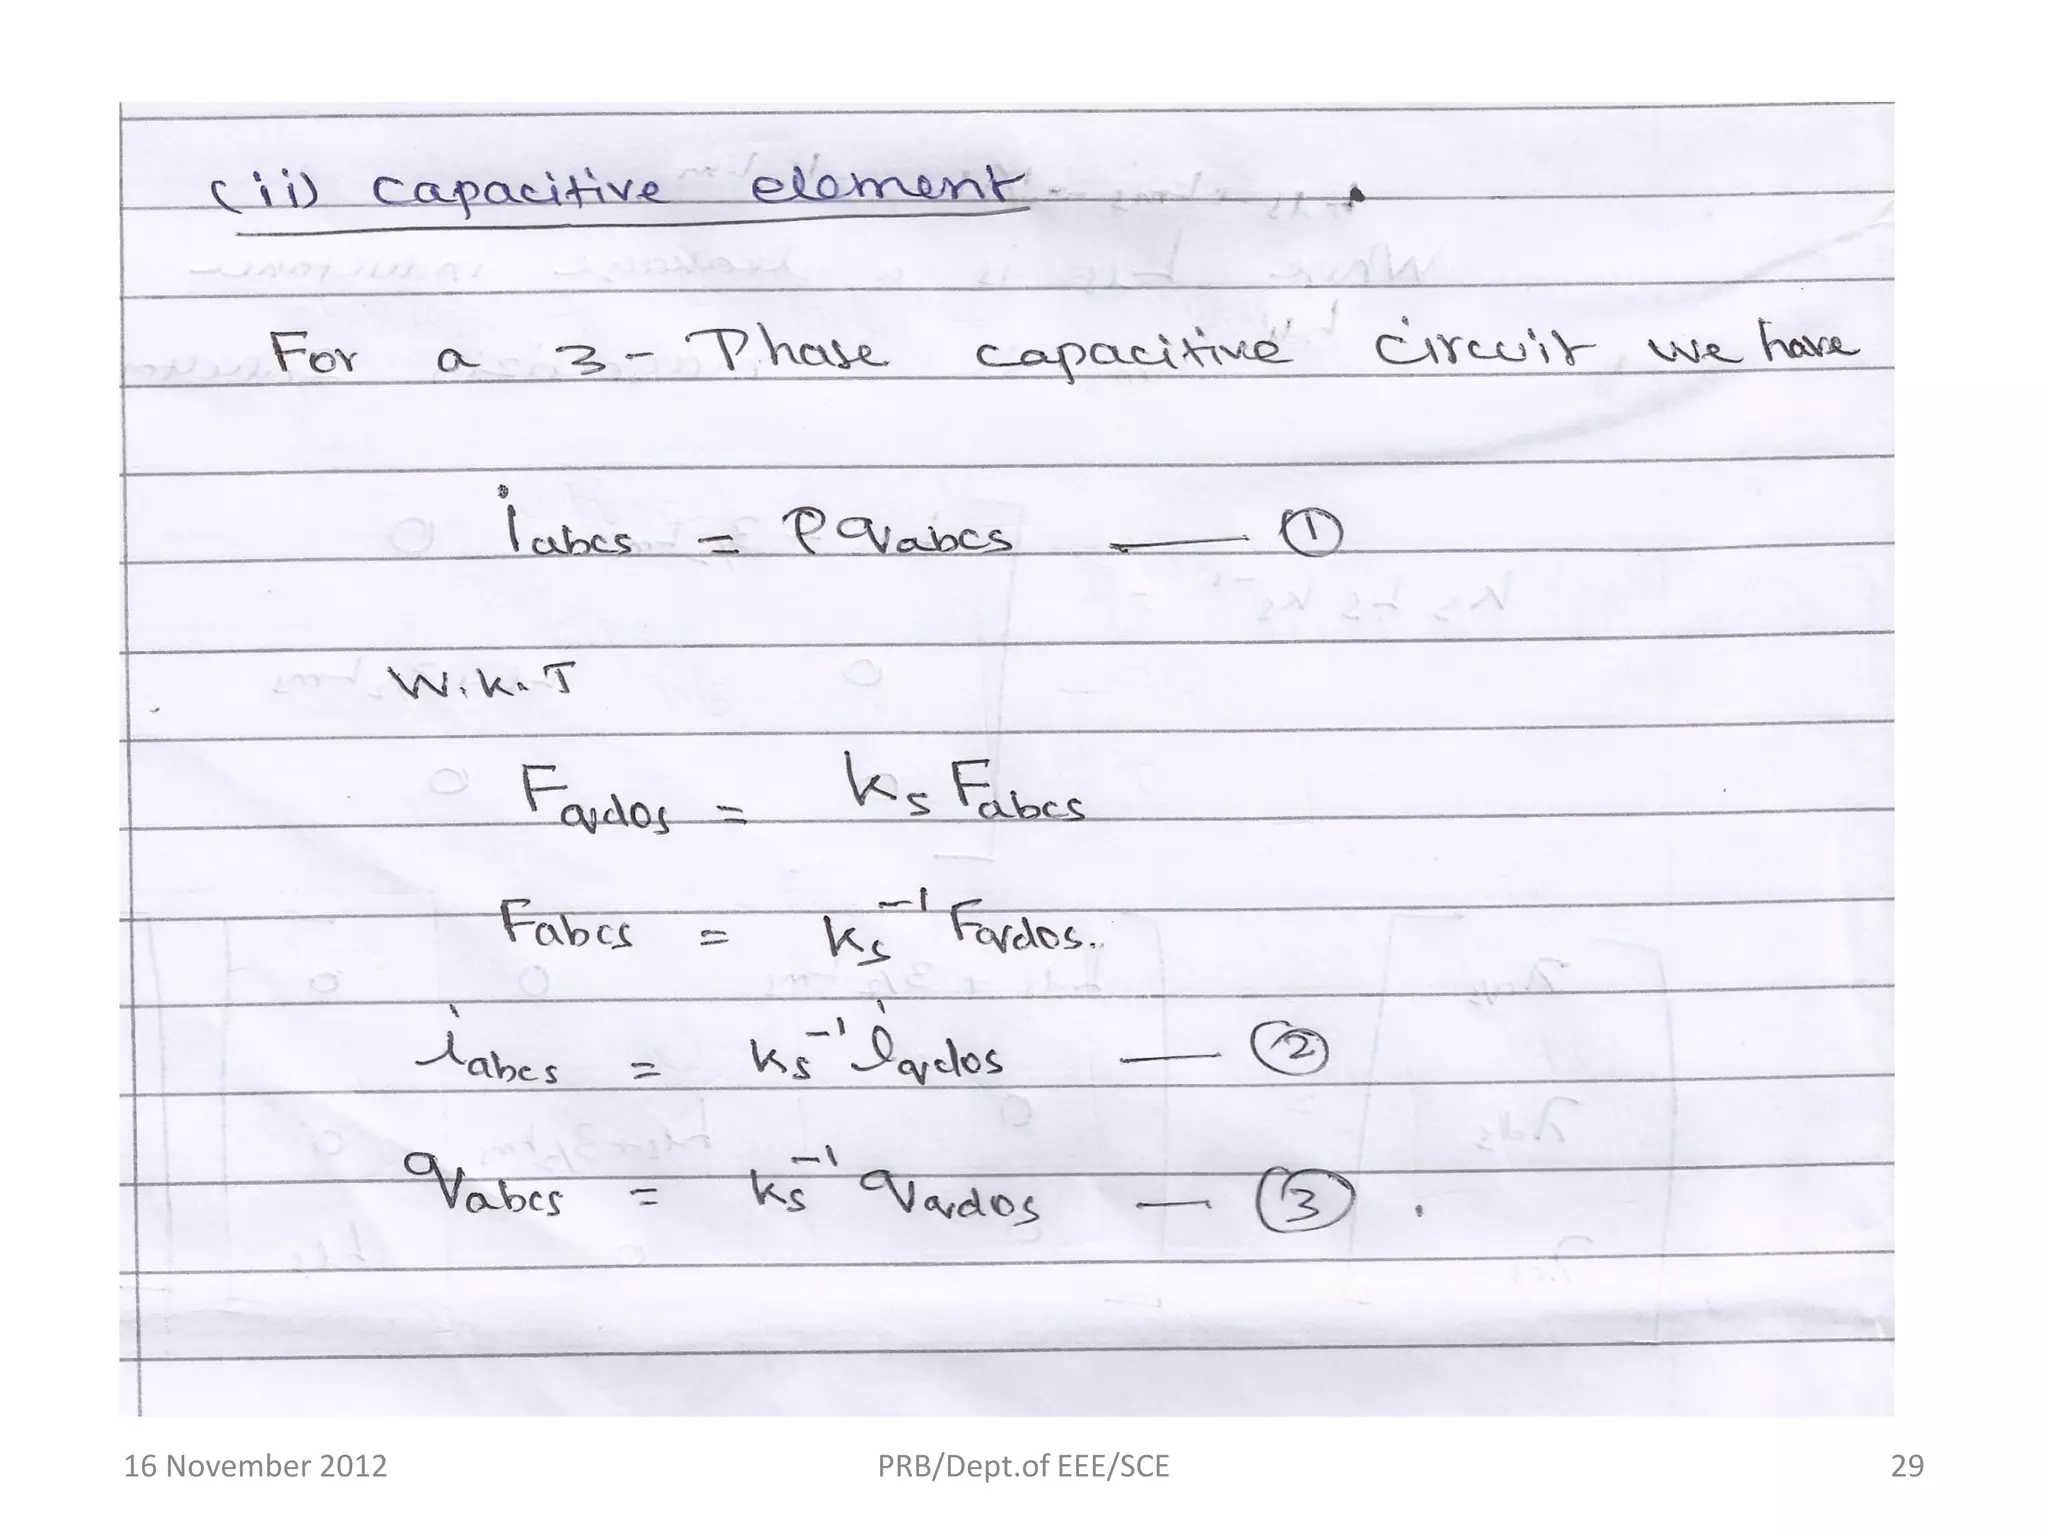 (ii) capacitive element
For a 3-Phase capacitive circuit we have
iabcs = Pqabcs — ①
W.K.T
Fqdos = ks Fabcs
Fabcs = ks⁻¹ Fqdos.
iabcs = ks⁻¹ iqdos — ②
qabcs = ks⁻¹ qqdos — ③.
16 November 2012 PRB/Dept.of EEE/SCE 29